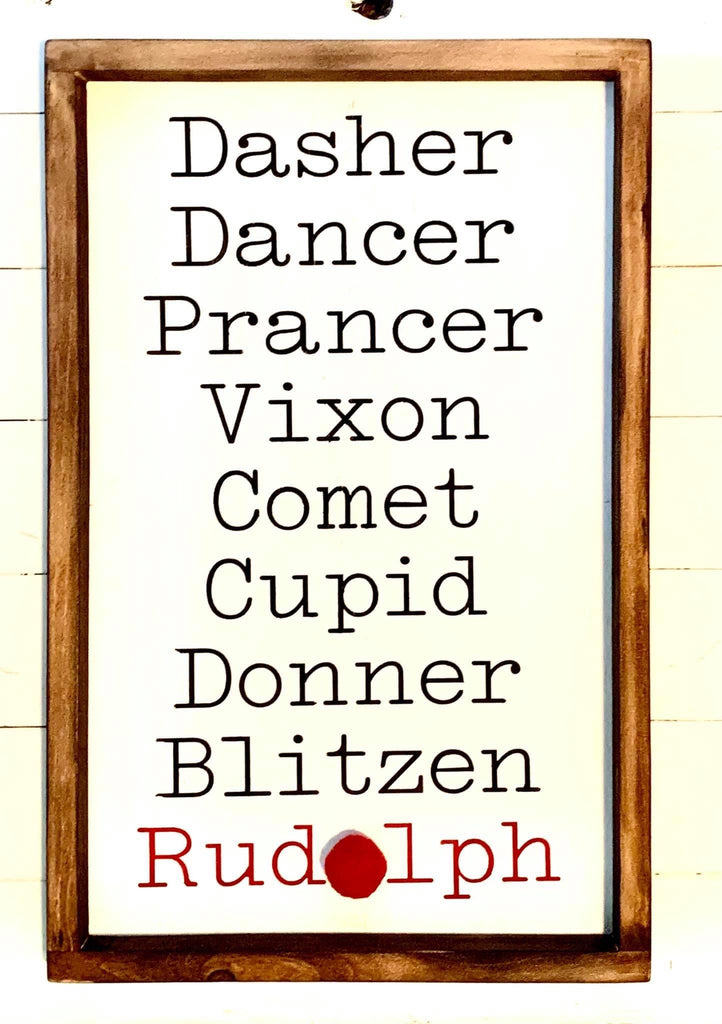 Dasher
Dancer
Prancer
Vixon
Comet
Cupid
Donner
Blitzen
Rudolph